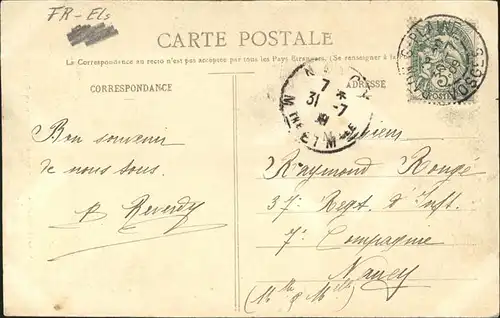 FR-Els
CARTE POSTALE
La Correspondance au recto n'est pas acceptée par tous les Pays Étrangers. (Se renseigner à la
CORRESPONDANCE
ADRESSE
NANCY
7 *
31 -7
Mthe ET Mlle
Raymond Rougé
37e Regt. d'Inft.
7e Compagnie
Nancy
(Mthe & Mlle)
Bon souvenir
de nous tous.
P Reverdy